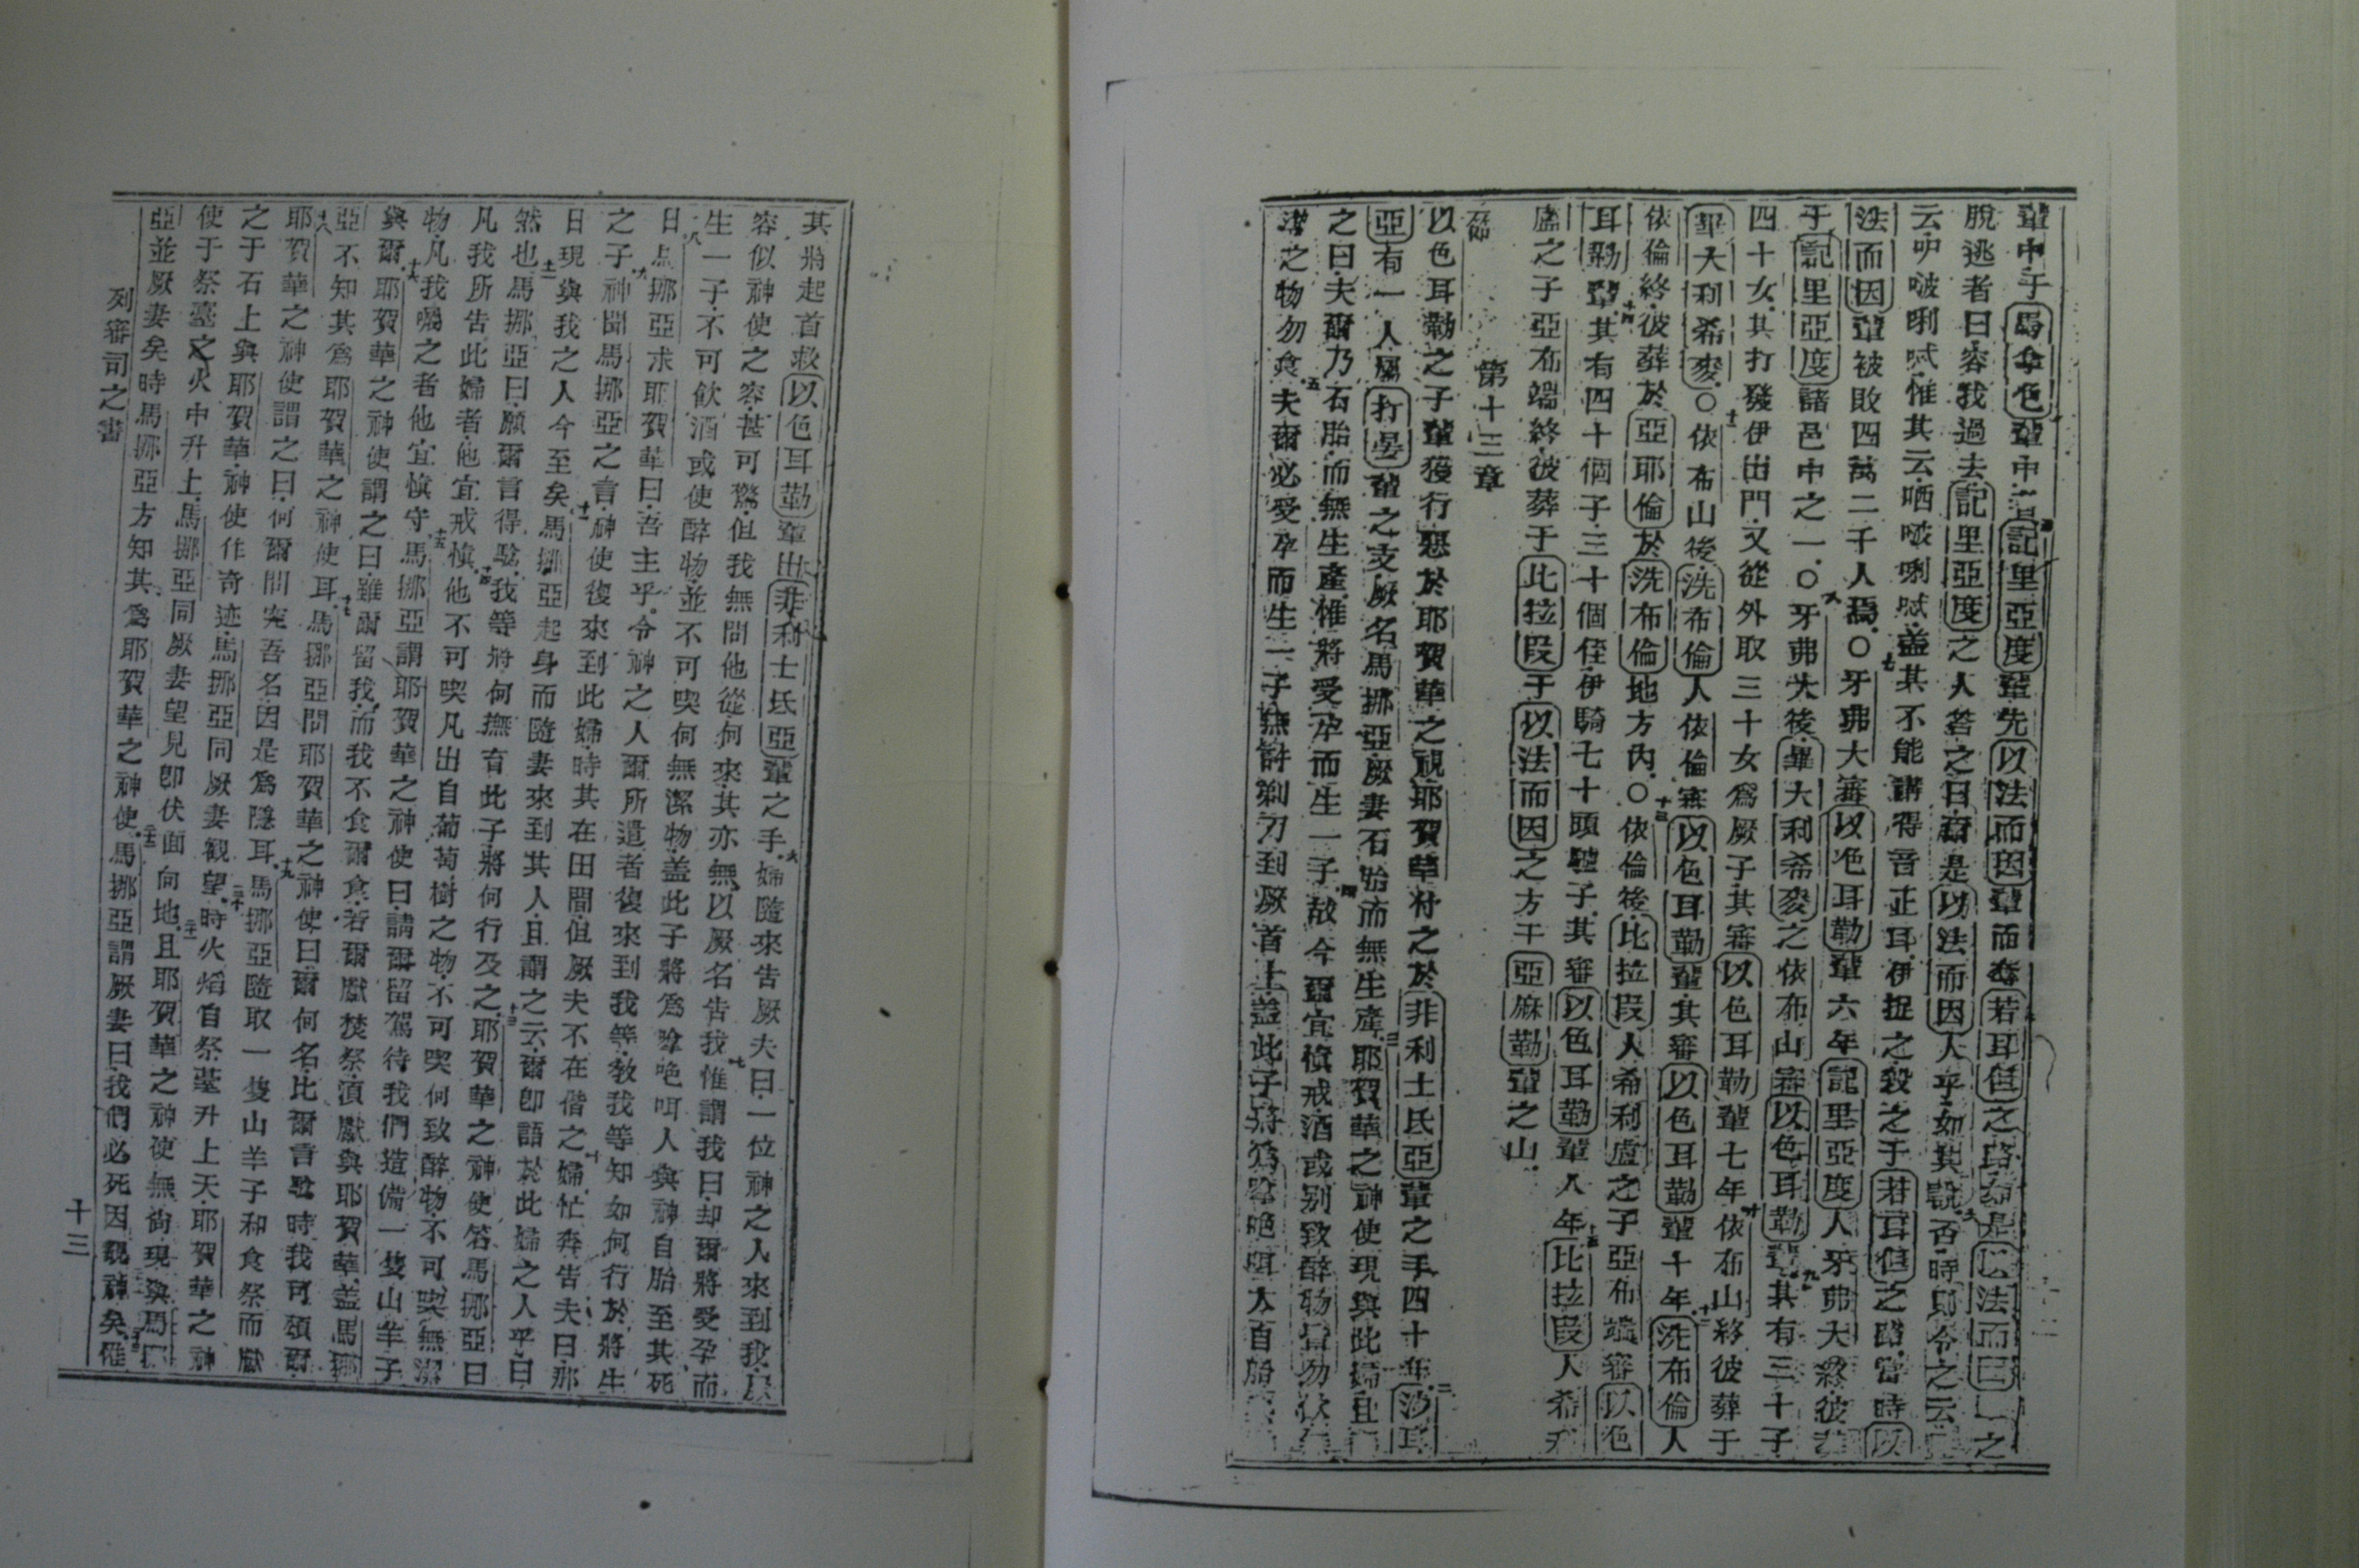 輩中于馬拿色輩中記里亞度輩先以法而因輩而奪若耳但之路是以法而因之
脫逃者曰容我過去記里亞度之人答之曰爾是以法而因人乎如其說否時則令之云
云咿啵唎𠯋惟其云哂啵唎𠯋盖其不能講得音正耳伊捉之殺之于若耳但之路當時以
法而因輩被敗四萬二千人焉○牙弗大審以色耳勒輩六年記里亞度人牙弗大終彼葬
于記里亞度諸邑中之一○牙弗大後畢大利希麥之依布山審以色耳勒輩其有三十子
四十女其打發伊出門又從外取三十女爲厥子其審以色耳勒輩七年依布山終彼葬于
畢大利希麥○依布山後洗布倫人依倫審以色耳勒輩其審以色耳勒輩十年洗布倫人
依倫終彼葬於亞耶倫於洗布倫地方內○依倫後比拉段人希利盧之子亞布端審以色
耳勒輩其有四十個子三十個侄伊騎七十頭驢子其審以色耳勒輩八年比拉段人希利
盧之子亞布端終彼葬于此拉段于以法而因之方于亞麻勒輩之山
第十三章
以色耳勒之子輩獲行惡於耶賀華之視耶賀華付之於非利士氏亞輩之手四十年沙耳
亞有一人屬打晏輩之支厥名馬挪亞厥妻石胎而無生產耶賀華之神使現與此婦且
之曰夫爾乃石胎而無生產惟將受孕而生一子故今爾宜慎戒酒或别致醉物皆勿飲
潔之物勿食夫爾必受孕而生一子無許剃刀到厥首上盖此子將爲唥咟咡人自胎
其將起首救以色耳勒輩出非利士氏亞輩之手婦隨來告厥夫曰一位神之人來到我厥
容似神使之容甚可驚但我無問他從何來其亦無以厥名告我惟謂我曰却爾將受孕而
生一子不可飲酒或使醉物並不可喫何無潔物盖此子將爲唥咟咡人與神自胎至其死
日馬挪亞求耶賀華曰吾主乎令神之人爾所遣者復來到我等教我等知如何行於將生
之子神聞馬挪亞之言神使復來到此婦時其在田間但厥夫不在偕之婦忙奔告夫曰那
日現與我之人今至矣馬挪亞起身而隨妻來到其人且謂之云爾卽語於此婦之人乎曰
然也馬挪亞曰願爾言得騐我等將何撫育此子將何行及之耶賀華之神使答馬挪亞曰
凡我所告此婦者他宜戒慎他不可喫凡出自葡萄樹之物不可喫何致醉物不可喫無潔
物凡我囑之者他宜慎守馬挪亞謂耶賀華之神使曰請爾留駕待我們造備一隻山羊子
與爾耶賀華之神使謂之曰雖爾留我而我不食爾食若爾獻焚祭湏獻與耶賀華盖馬挪
亞不知其爲耶賀華之神使耳馬挪亞問耶賀華之神使曰爾何名比爾言騐時我可頌爾
耶賀華之神使謂之曰何爾問究吾名因是爲隱耳馬挪亞隨取一隻山羊子和食祭而獻
之于石上與耶賀華神使作奇迹馬挪亞同厥妻観望時火熖自祭臺升上天耶賀華之神
使于祭臺之火中升上馬挪亞同厥妻望見卽伏面向地且耶賀華之神使無尙現與馬挪
亞並厥妻矣時馬挪亞方知其爲耶賀華之神使馬挪亞謂厥妻曰我們必死因覩神矣惟
列審司之書
十三